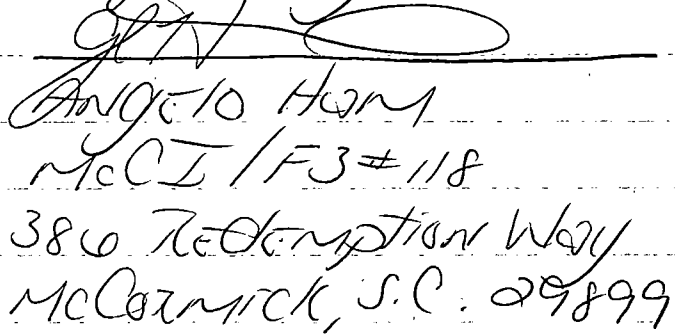 Angelo Ham
McCI / F3 # 118
386 Redemption Way
McCormick, S.C. 29899